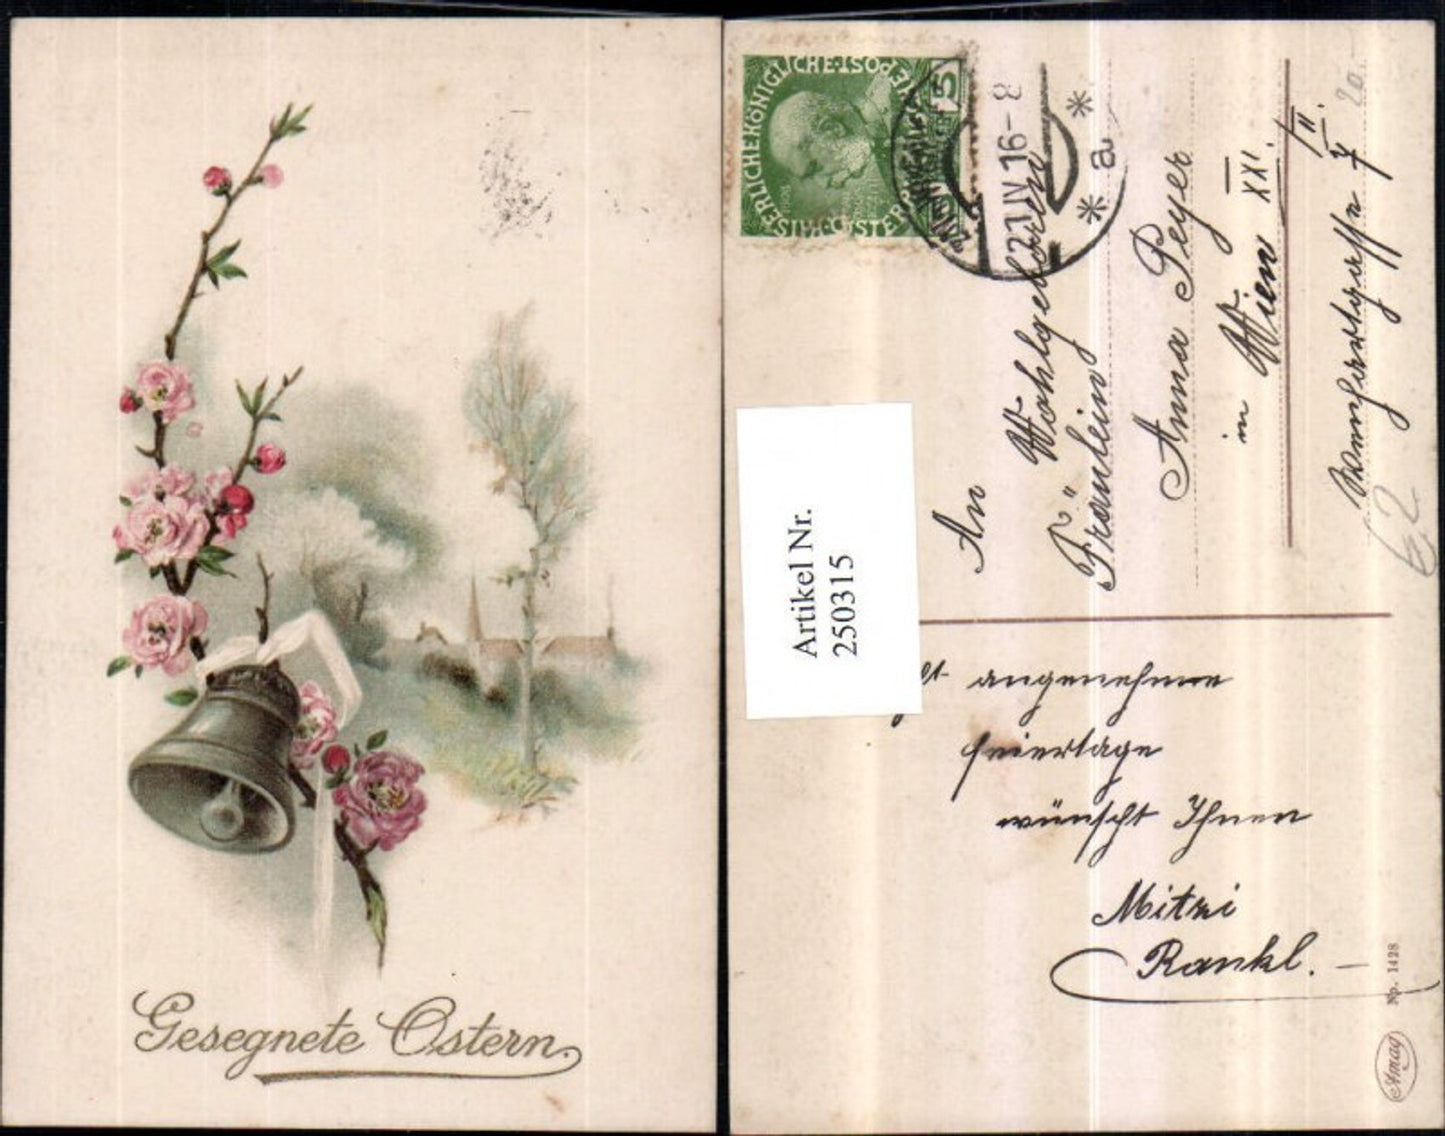 Gesegnete Ostern.
KAISERLICHE KÖNIGLICHE ÖSTERR. POST
5
22 IV 16-8
* a *
An
Wohlgeboren
Fräulein
Anna Peyer
in Wien XXI.
7/II.
20.-
€2
Artikel Nr.
250315
angenehme
Feiertage
wünscht Ihnen
Mitzi
Rankl. –
Np. 1428
Amag